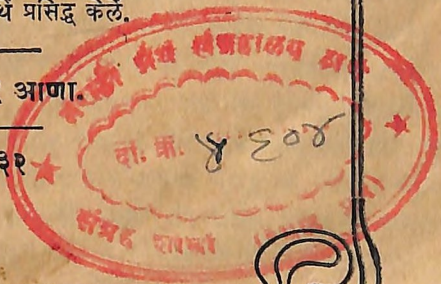 र्थे प्रसिद्ध केलें.
आणा.
मराठी ग्रंथ संग्रहालय
३२
दा. क्र. ४६०४
संग्रह शाखा